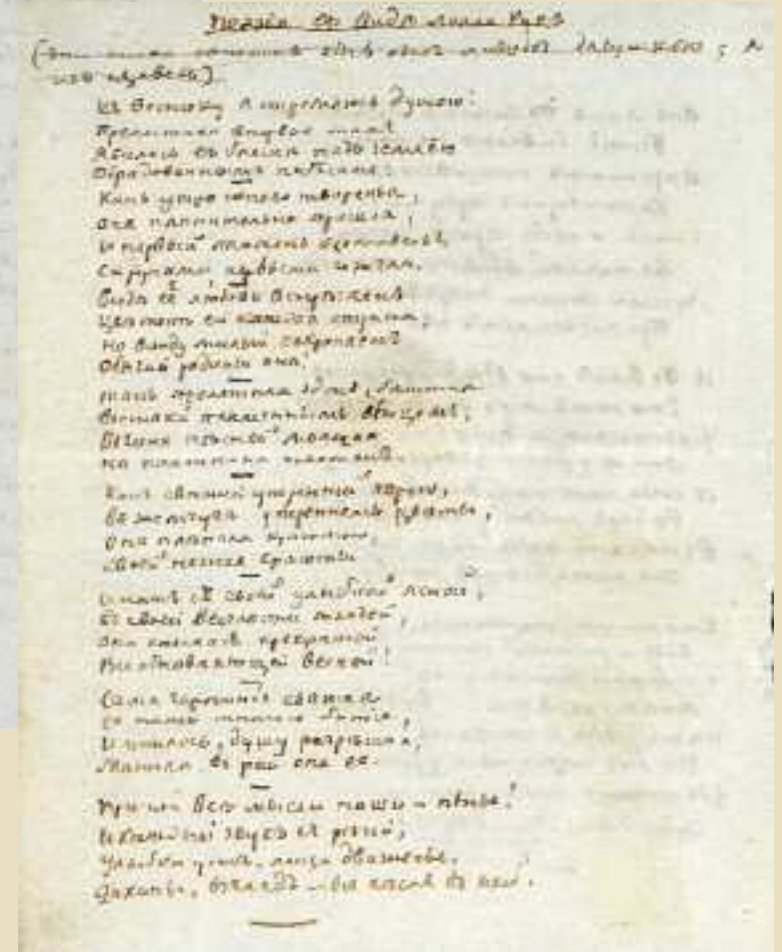 Поэзія въ видѣ Лалла Рукъ
Къ Востоку я стремлюсь душою!
Прелестная впервые тамъ
Явилась въ блескѣ надъ землёю
Обрадованнымъ небесамъ.
Какъ утро юнаго творенья,
Она плѣнительна пришла,
И первый пламень вдохновенья
Струнами первыми зажгла.
её любовь встрѣчаетъ
Цвѣтетъ ей каждая страна;
Но всюду милый сохраняетъ
Обычай родины она!
Такъ пролетѣла здѣсь, блистая
Востока пламеннымъ вѣнцомъ,
Богиня пѣсней молодая
На паланкинѣ золотомъ.
Какъ свѣжей утренней порою,
Въ жемчугѣ утреннемъ цвѣты,
Она плѣняла красотою,
Своей не зная красоты
И намъ съ своей улыбкой ясной,
Въ своей веселости младой,
Она казалась прекрасной
Всеобновляющей весной!
Сама гармонія святая
Ее намъ мнилось бытіе,
И мнилось, душу разрѣшая,
Манила въ рай она ее.
При ней всѣ мысли наши – пѣнье!
И каждый звукъ ея рѣчей,
Улыбка устъ, лица движенье,
Дыханье, взглядъ – все пѣсня въ ней.